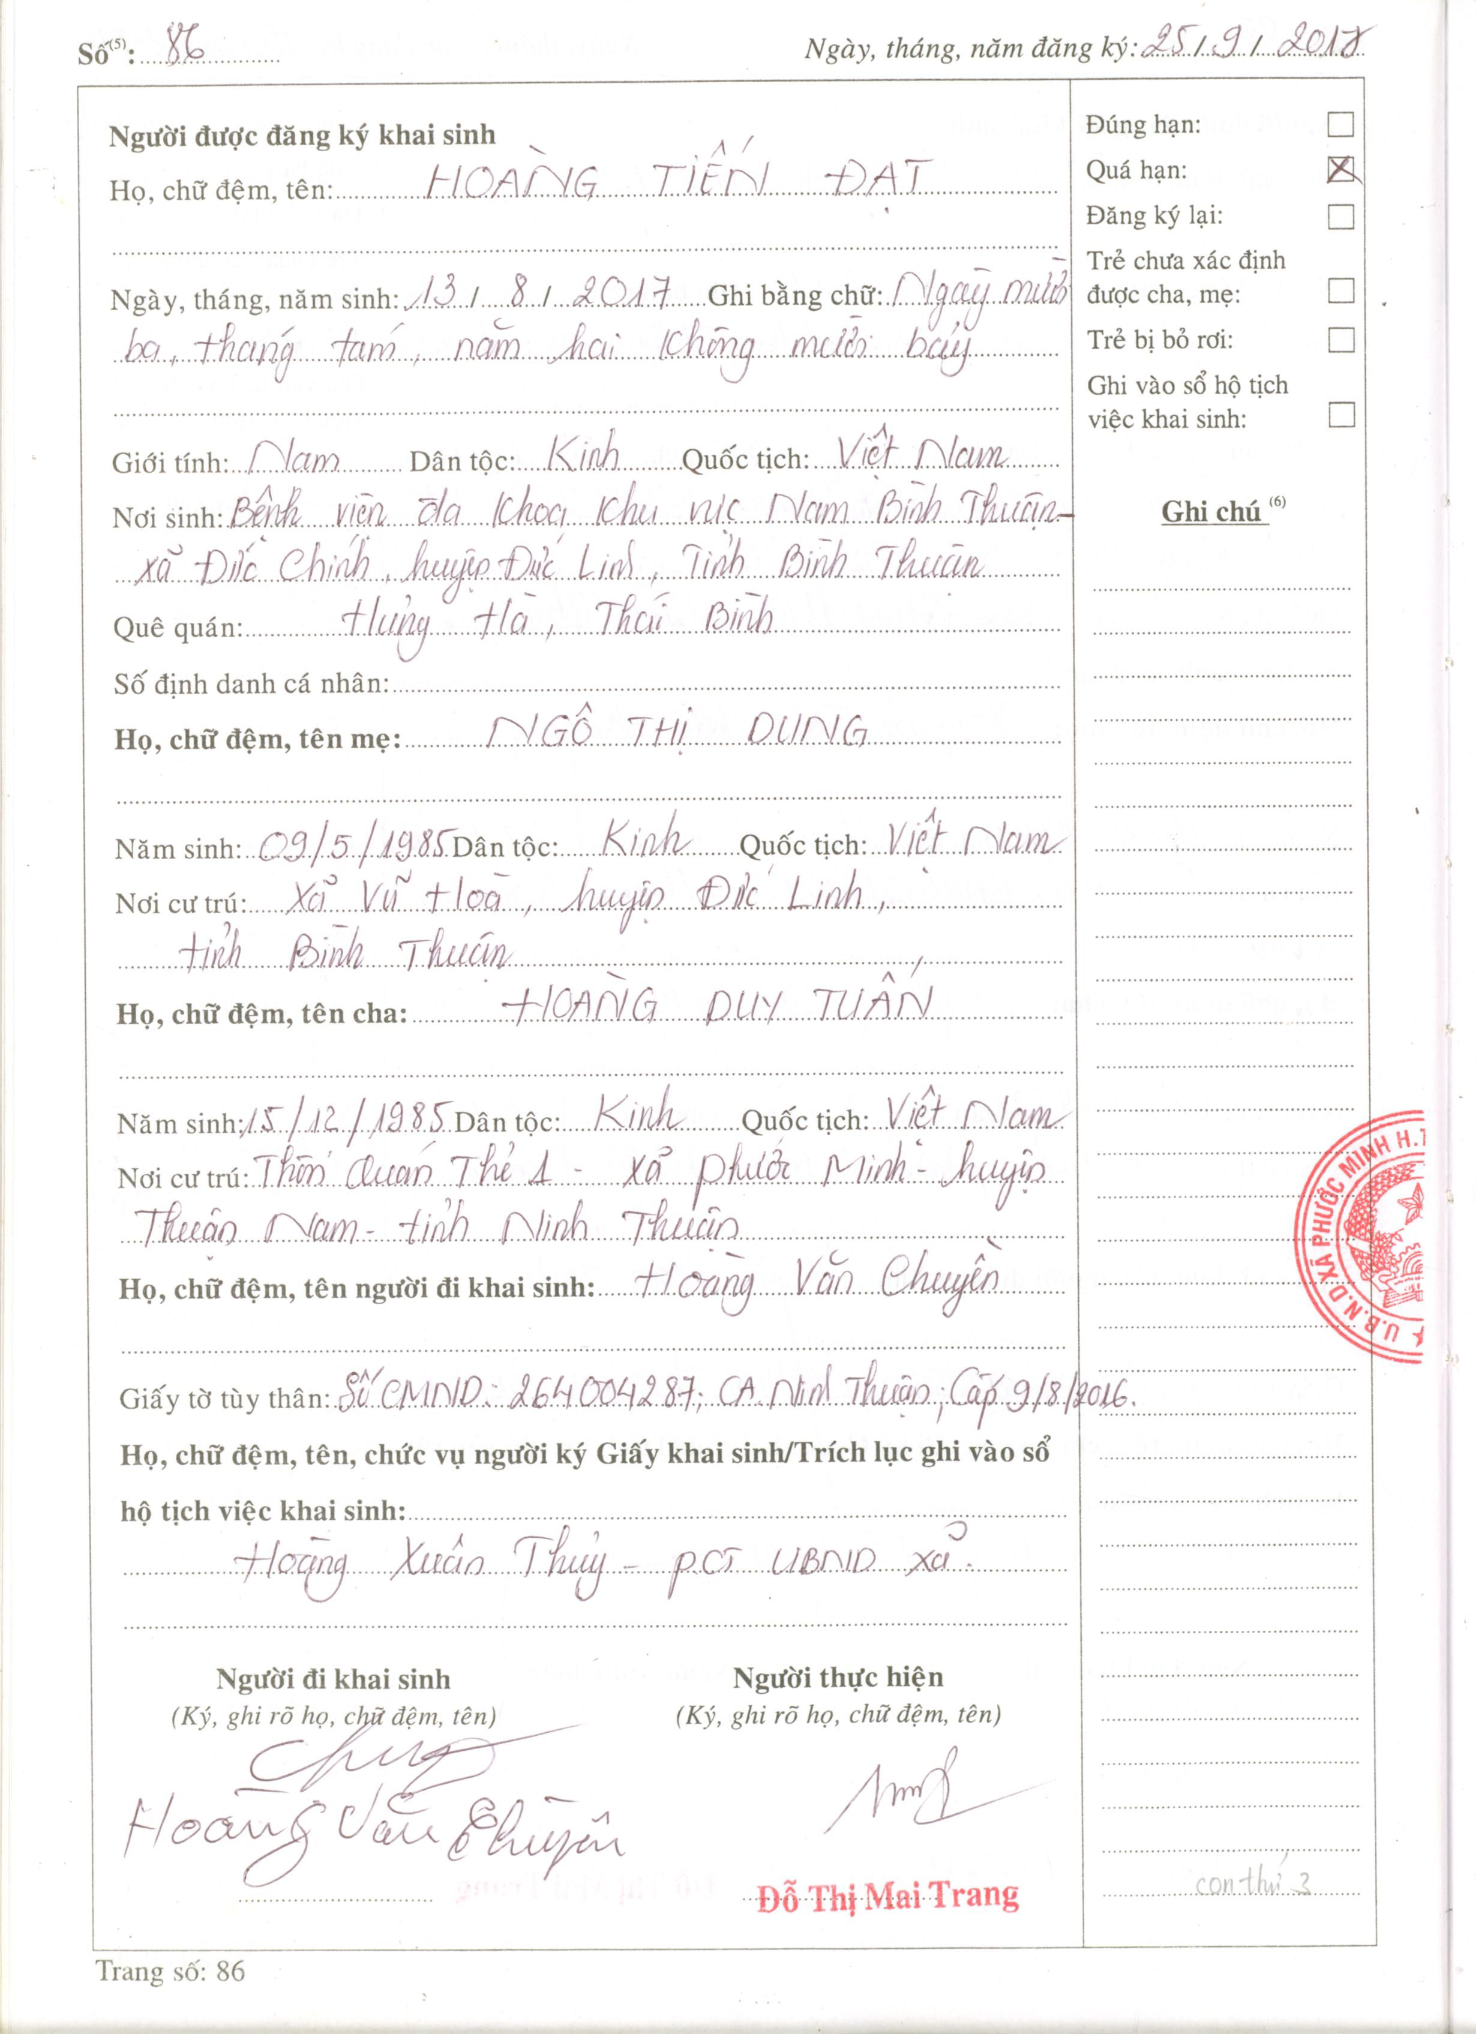 Số(5): 86
Ngày, tháng, năm đăng ký: 25/9/2017
Người được đăng ký khai sinh
Họ, chữ đệm, tên: HOÀNG TIẾN ĐẠT
Ngày, tháng, năm sinh: 13/8/2017 Ghi bằng chữ: Ngày mười
ba, tháng tám, năm hai không mười bảy
Giới tính: Nam Dân tộc: Kinh Quốc tịch: Việt Nam
Nơi sinh: Bệnh viện đa khoa khu vực Nam Bình Thuận -
xã Đức Chính, huyện Đức Linh, Tỉnh Bình Thuận
Quê quán: Hưng Hà, Thái Bình
Số định danh cá nhân:
Họ, chữ đệm, tên mẹ: NGÔ THỊ DUNG
Năm sinh: 09/5/1985 Dân tộc: Kinh Quốc tịch: Việt Nam
Nơi cư trú: Xã Vũ Hoà, huyện Đức Linh,
tỉnh Bình Thuận
Họ, chữ đệm, tên cha: HOÀNG DUY TUẤN
Năm sinh: 15/12/1985 Dân tộc: Kinh Quốc tịch: Việt Nam
Nơi cư trú: Thôn Quán Thẻ 1 - xã Phước Minh - huyện
Thuận Nam - tỉnh Ninh Thuận
Họ, chữ đệm, tên người đi khai sinh: Hoàng Văn Chuyền
Giấy tờ tùy thân: Số CMND: 264004287; CA. Ninh Thuận; Cấp 9/8/2016.
Họ, chữ đệm, tên, chức vụ người ký Giấy khai sinh/Trích lục ghi vào sổ
hộ tịch việc khai sinh:
Hoàng Xuân Thủy - PCT UBND xã.
Người đi khai sinh
(Ký, ghi rõ họ, chữ đệm, tên)
Hoàng Văn Chuyền
Người thực hiện
(Ký, ghi rõ họ, chữ đệm, tên)
Đỗ Thị Mai Trang
Đúng hạn:
Quá hạn: X
Đăng ký lại:
Trẻ chưa xác định
được cha, mẹ:
Trẻ bị bỏ rơi:
Ghi vào sổ hộ tịch
việc khai sinh:
Ghi chú (6)
U.B.N.D XÃ PHƯỚC MINH H.T
con thứ 3
Trang số: 86